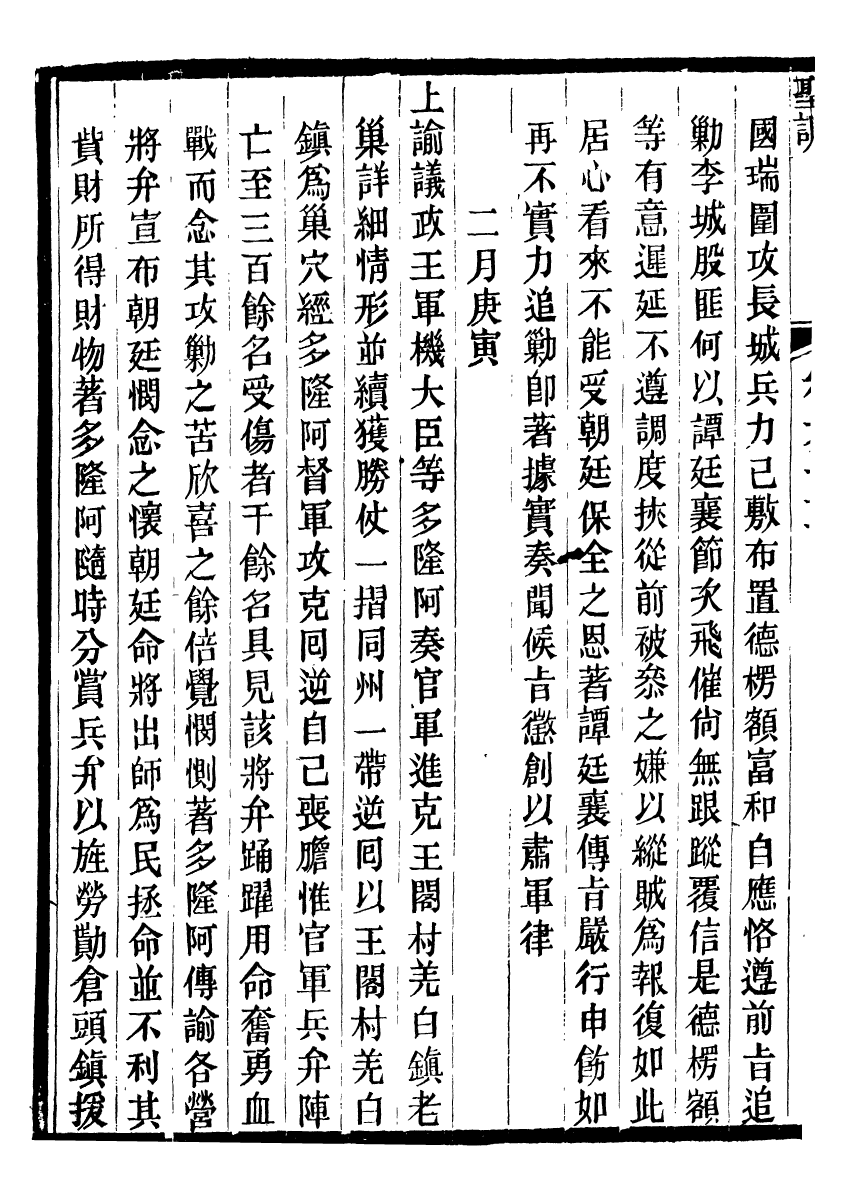 聖訓
國瑞圍攻長城兵力已敷布置德楞額富和自應恪遵前旨追
勦李城股匪何以譚廷襄節次飛催尙無跟蹤覆信是德楞額
等有意遲延不遵調度挾從前被叅之嫌以縱賊爲報復如此
居心看來不能受朝廷保全之恩著譚廷襄傳旨嚴行申飭如
再不實力追勦卽著據實奏聞候旨懲創以肅軍律
二月庚寅
上諭議政王軍機大臣等多隆阿奏官軍進克王閣村羌白鎭老
巢詳細情形並續獲勝仗一摺同州一帶逆囘以王閣村羌白
鎭爲巢穴經多隆阿督軍攻克囘逆自已喪膽惟官軍兵弁陣
亡至三百餘名受傷者千餘名具見該將弁踊躍用命奮勇血
戰而念其攻勦之苦欣喜之餘倍覺憫惻著多隆阿傳諭各營
將弁宣布朝廷憫念之懷朝廷命將出師爲民拯命並不利其
貲財所得財物著多隆阿隨時分賞兵弁以旌勞勩倉頭鎭援